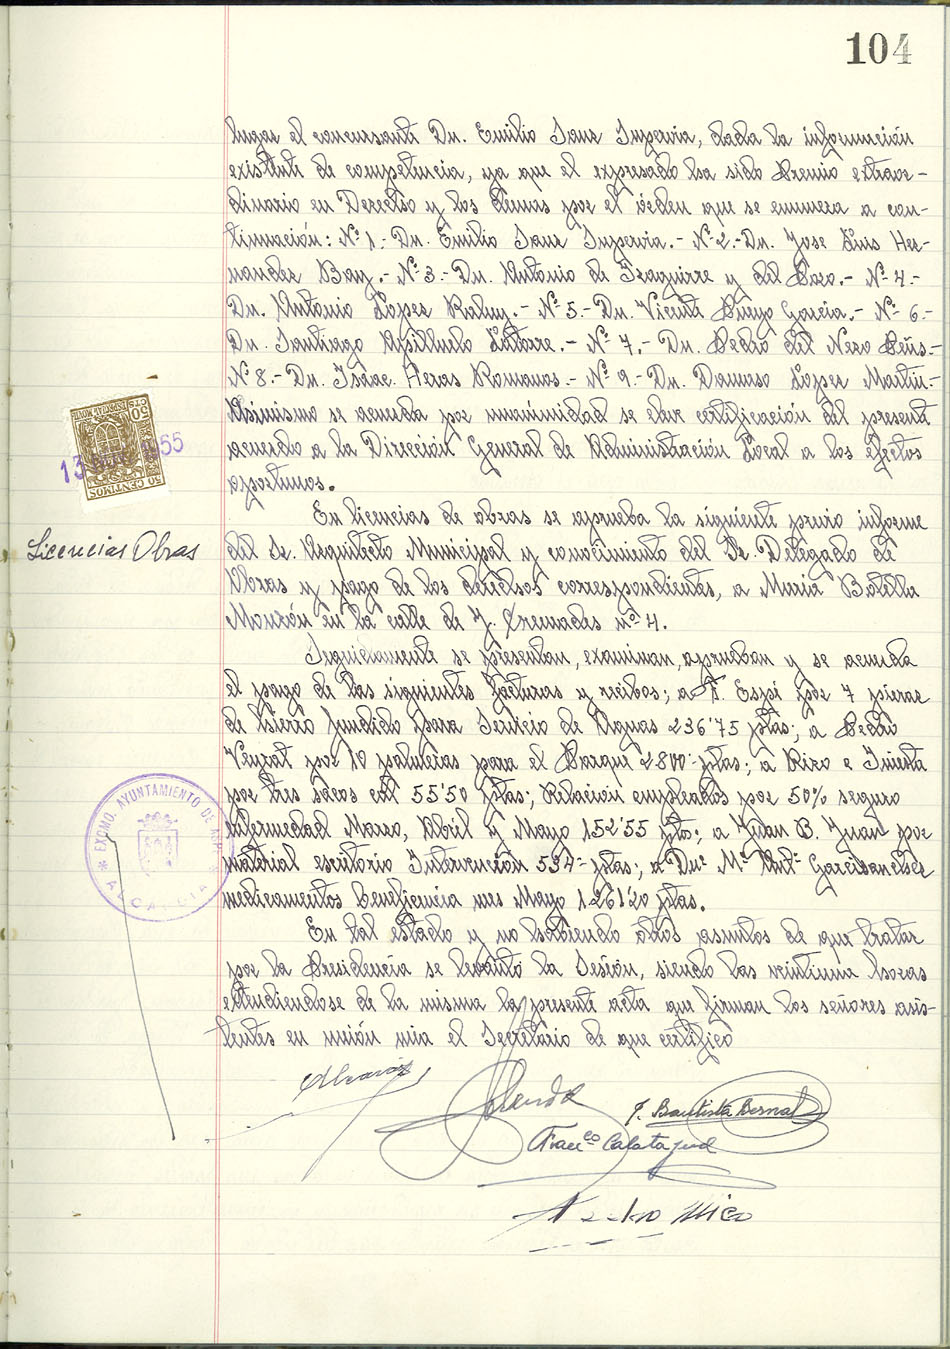 104
lugar el concursante Dn. Emilio Sanz Impervia, dada la información
existente de competencia, ya que el expresado ha sido Premio extraor-
dinario en Derecho y los demas por el orden que se enumera a con-
tinuación: Nº 1.- Dn. Emilio Sanz Impervia.- Nº 2.- Dn. Jose Luis Her-
nandez Bay.- Nº 3.- Dn. Antonio de Izaguirre y del Pozo.- Nº 4.-
Dn. Antonio López Raluy.- Nº 5.- Dn. Vicente Pueyo Garcia.- Nº 6.-
Dn. Santiago Latorre.- Nº 7.- Dn. Pedro del Nero
Nº 8.- Dn. Isaac Heras Romanos.- Nº 9.- Dn. Damaso López Martin.-
Asimismo se acuerda por unanimidad se eleve certificación del presente
acuerdo a la Dirección General de Administración Local a los efectos
oportunos.
13 1955
50 CENTIMOS
Licencias Obras
En licencias de obras se aprueba la siguiente previo informe
del Sr. Arquitecto Municipal y conocimiento del Sr. Delegado de
Obras y pago de los derechos correspondientes, a Maria Botella
Monzón en la calle de J. Tremades nº 4.
Seguidamente se presentan, examinan, aprueban y se acuerda
el pago de las siguientes facturas y recibos; a Espí por 7 piezas
de hierro fundido para Servicio de Aguas 236'75 ptas; a Pedro
por 10 palmeras para el Parque 2800- ptas; a Rizo e Iniesta
por tres sacos cal 55'50 ptas; Relación empleados por 50% seguro
enfermedad Marzo, Abril y Mayo 152'55 pts; a Juan B. Juan por
material escritorio Intervención 534- ptas; a Dnª Mª Antª Garcisanchez
medicamentos beneficencia mes Mayo 126120 ptas.
EXCMO. AYUNTAMIENTO DE
ALCALDIA
En tal estado y no habiendo otros asuntos de que tratar
por la Presidencia se levantó la Sesión, siendo las veintiuna horas
extendiendose de la misma la presente acta que firman los señores asis-
tentes en unión mia el Secretario de que certifico
J. Bautista Bernal
Francº Calatayud
Mico